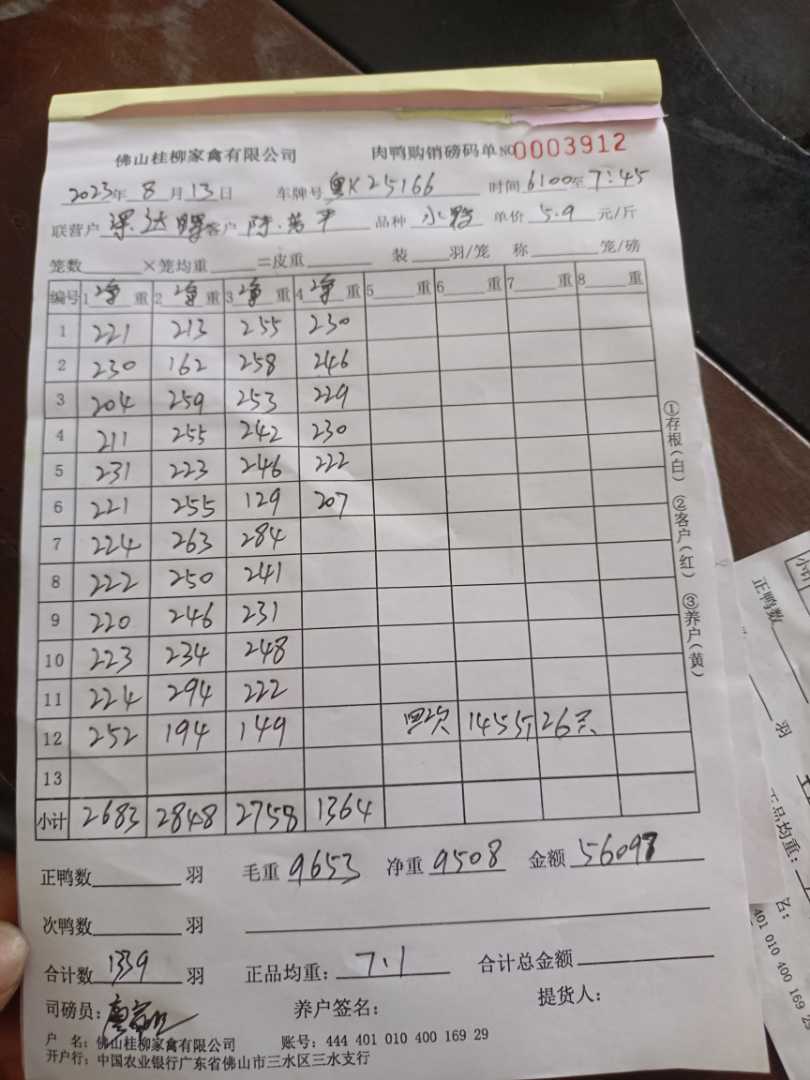 佛山桂柳家禽有限公司 肉鸭购销磅码单 NO 0003912
2023年 8月13日 车牌号 粤K25166 时间 6:00至7:45
联营户 客户 品种 水鸭 单价 5.9 元/斤
笼数 ×笼均重 =皮重 装 羽/笼 称 笼/磅
编号 1 重 2 重 3 重 4 重 5 重 6 重 7 重 8 重
1 221 213 255 230
2 230 162 258 246
3 204 259 253 229
4 211 255 242 230
5 231 223 246 222
6 221 255 129 207
7 224 263 284
8 222 250 241
9 220 246 231
10 223 234 248
11 224 294 222
12 252 194 149 145斤 26只
13
小计 2683 2848 2758 1364
正鸭数 羽 毛重 9653 净重 9508 金额 56097
次鸭数 羽
合计数 1339 羽 正品均重: 7.1 合计总金额
司磅员: 养户签名: 提货人:
户 名: 佛山桂柳家禽有限公司 账号: 444 401 010 400 169 29
开户行: 中国农业银行广东省佛山市三水区三水支行
①存根(白) ②客户(红) ③养户(黄)
小计
正鸭数
羽
正品均重:
401 010 400 169 29